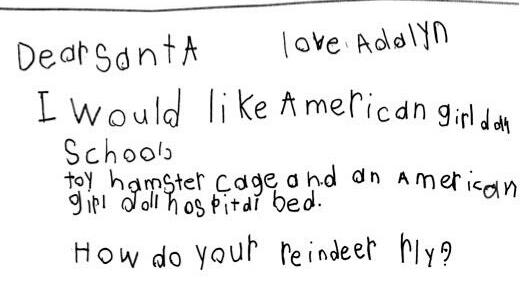 Dear SantA love Adalyn
I would like American girl doll
Schools
toy hamster cage and an American
girl doll hospital bed.
How do your reindeer fly?